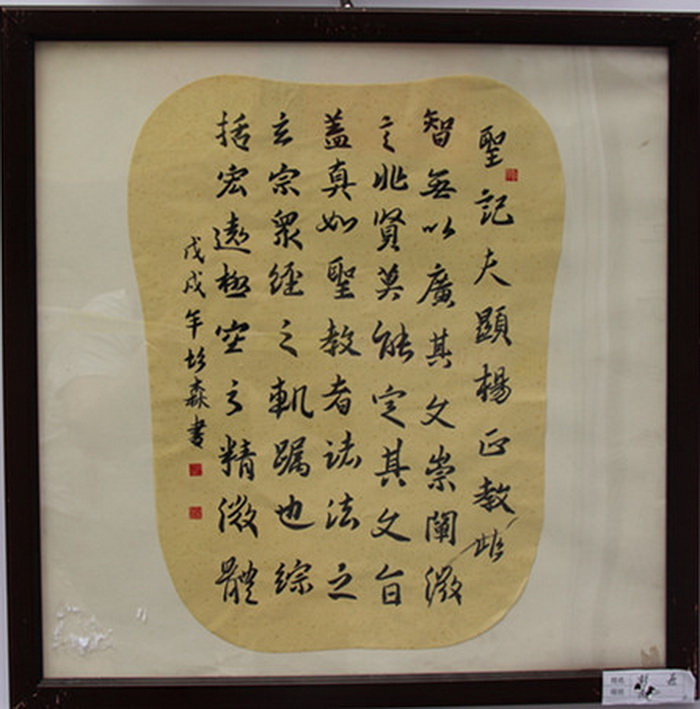 聖記夫顯楊正教非
智無以廣其文崇闡微
言非賢莫能定其文旨
蓋真如聖教者諸法之
玄宗衆經之軌躅也綜
括宏遠極空之精微體
戊戌年森書